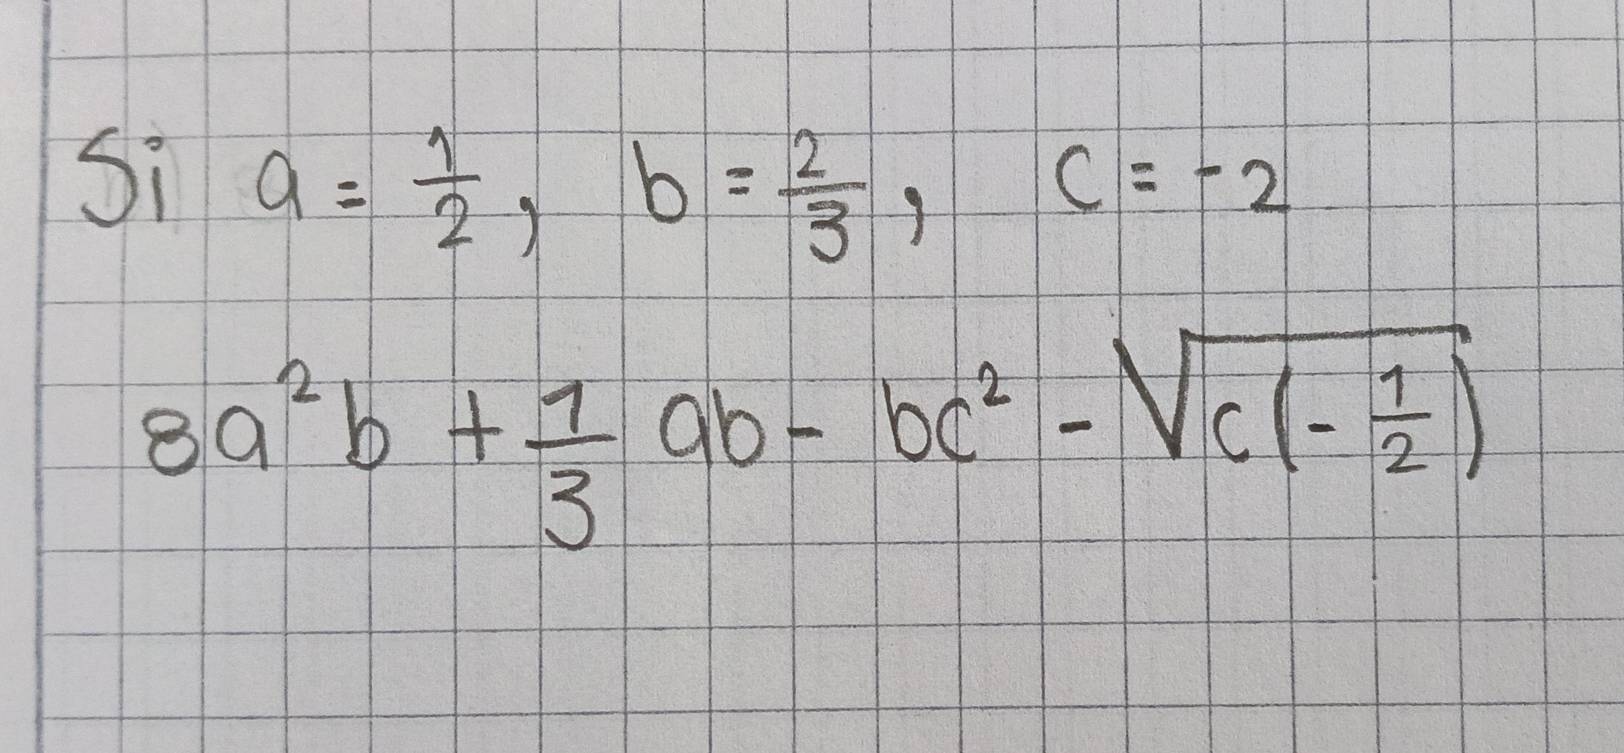 Si a = 1/2, b = 2/3, c = -2
8a²b + 1/3 ab - bc² - √(c(-1/2))